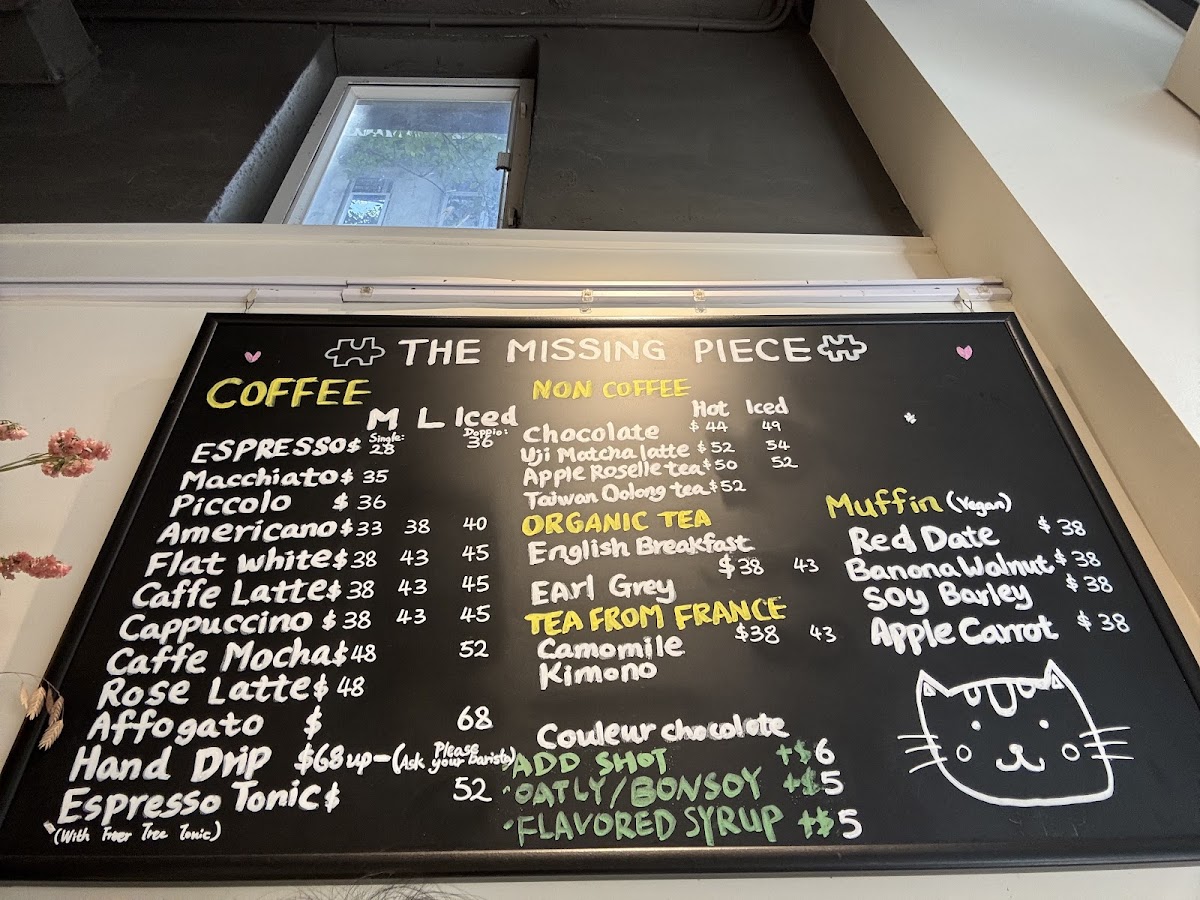 THE MISSING PIECE
COFFEE
M L Iced
ESPRESSO $ Single: 28 Doppio: 36
Macchiato $ 35
Piccolo $ 36
Americano $33 38 40
Flat white $38 43 45
Caffe Latte $38 43 45
Cappuccino $38 43 45
Caffe Mocha $48 52
Rose Latte $48
Affogato $ 68
Hand Drip $68 up-(Please Ask your Barista)
Espresso Tonic $ 52
(With Tree Tonic)
NON COFFEE
Hot Iced
Chocolate $44 49
Uji Matcha latte $52 54
Apple Roselle tea $50 52
Taiwan Oolong tea $52
ORGANIC TEA
English Breakfast
$38 43
Earl Grey
TEA FROM FRANCE
Camomile $38 43
Kimono
Couleur chocolate
ADD SHOT +$6
·OATLY/BONSOY +$5
·FLAVORED SYRUP +$5
Muffin (Vegan)
Red Date $38
Banana Walnut $38
Soy Barley $38
Apple Carrot $38